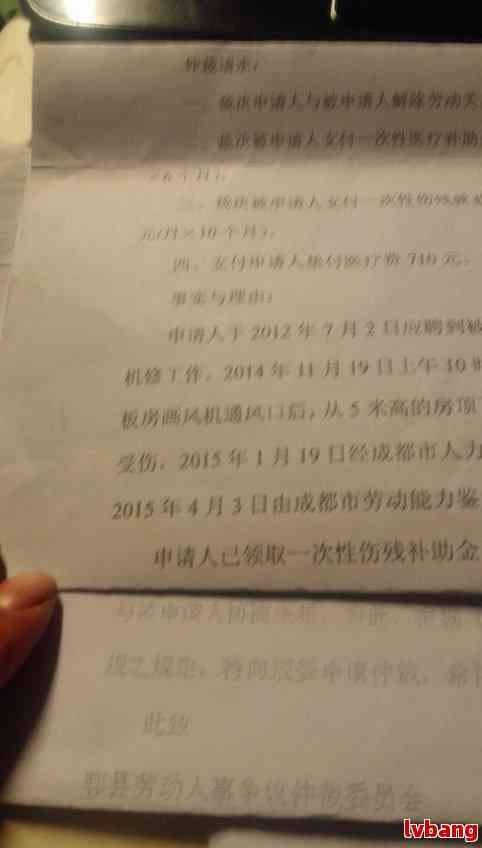 仲裁请求:
一、裁决申请人与被申请人解除劳动关
二、裁决被申请人支付一次性医疗补助
×6个月);
三、裁决被申请人支付一次性伤残就业
元/月×10个月);
四、支付申请人垫付医疗费740元。
事实与理由:
申请人于2012年7月2日应聘到被
机修工作。2014年11月19日上午10时
板房画风机通风口后,从5米高的房顶
受伤。2015年1月19日经成都市人力
2015年4月3日由成都市劳动能力鉴
申请人已领取一次性伤残补助金
与被申请人协商
规之规定,特向贵委申请仲裁,
此致
郫县劳动人事争议仲裁委员会
lvbang